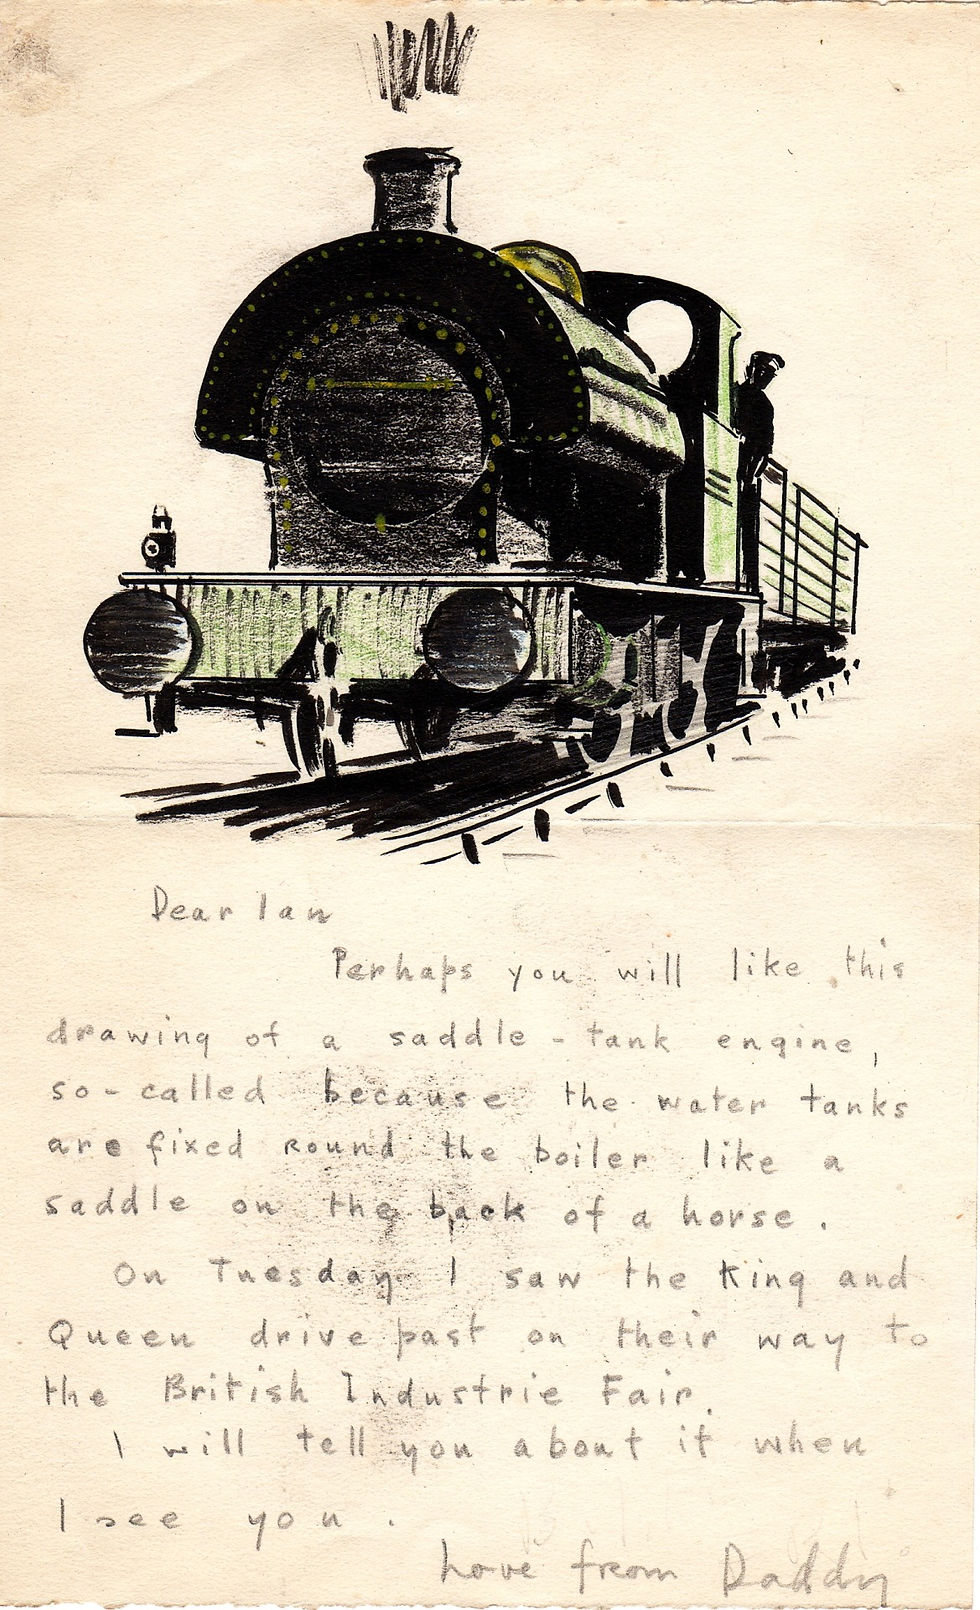 Dear Ian
Perhaps you will like this
drawing of a saddle - tank engine,
so-called because the water tanks
are fixed round the boiler like a
saddle on the back of a horse.
On Tuesday I saw the King and
Queen drive past on their way to
the British Industrie Fair.
I will tell you about it when
I see you.
Love from Daddy